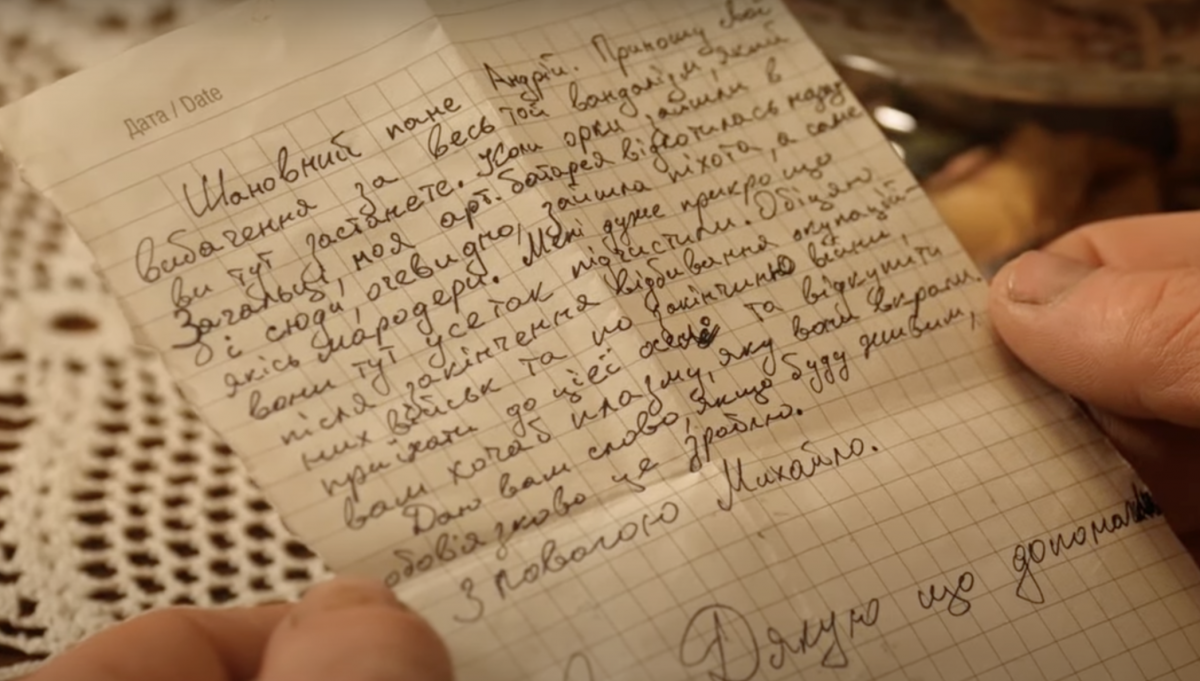 Дата / Date
Шановний пане Андрій. Приношу свої
вибачення за весь той вандалізм, який
ви тут застанете. Коли орки зайшли в
Загальці, моя арт. батарея відкотилась назад
і сюди, очевидно, зайшла піхота, а саме
якісь мародери. Мені дуже прикро що
вони тут усе так почистили. Обіцяю
після закінчення відбивання окупацій-
них військ та по закінченню війни
приїхати до цієї оселі та відкупити
вам хочаб плазму, яку вони вкрали.
Даю вам слово, якщо буду живим,
обов'язково це зроблю.
З повагою Михайло.
Дякую що